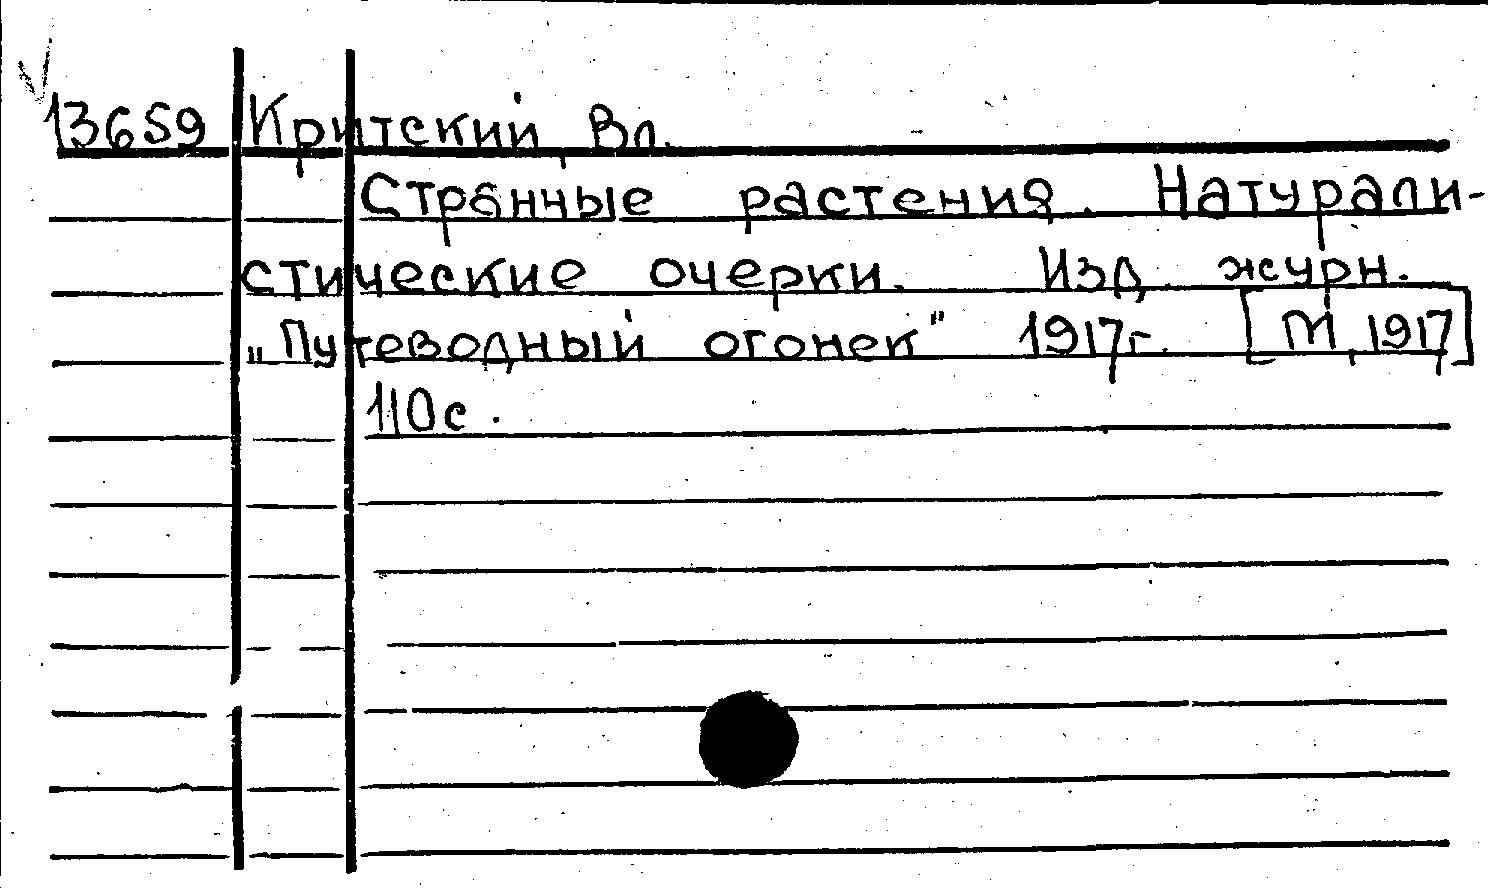 13659 Критский, Вл.
Странные растения. Натурали-
стические очерки. Изд. журн.
„Путеводный огонек" 1917г. [М, 1917]
110с.